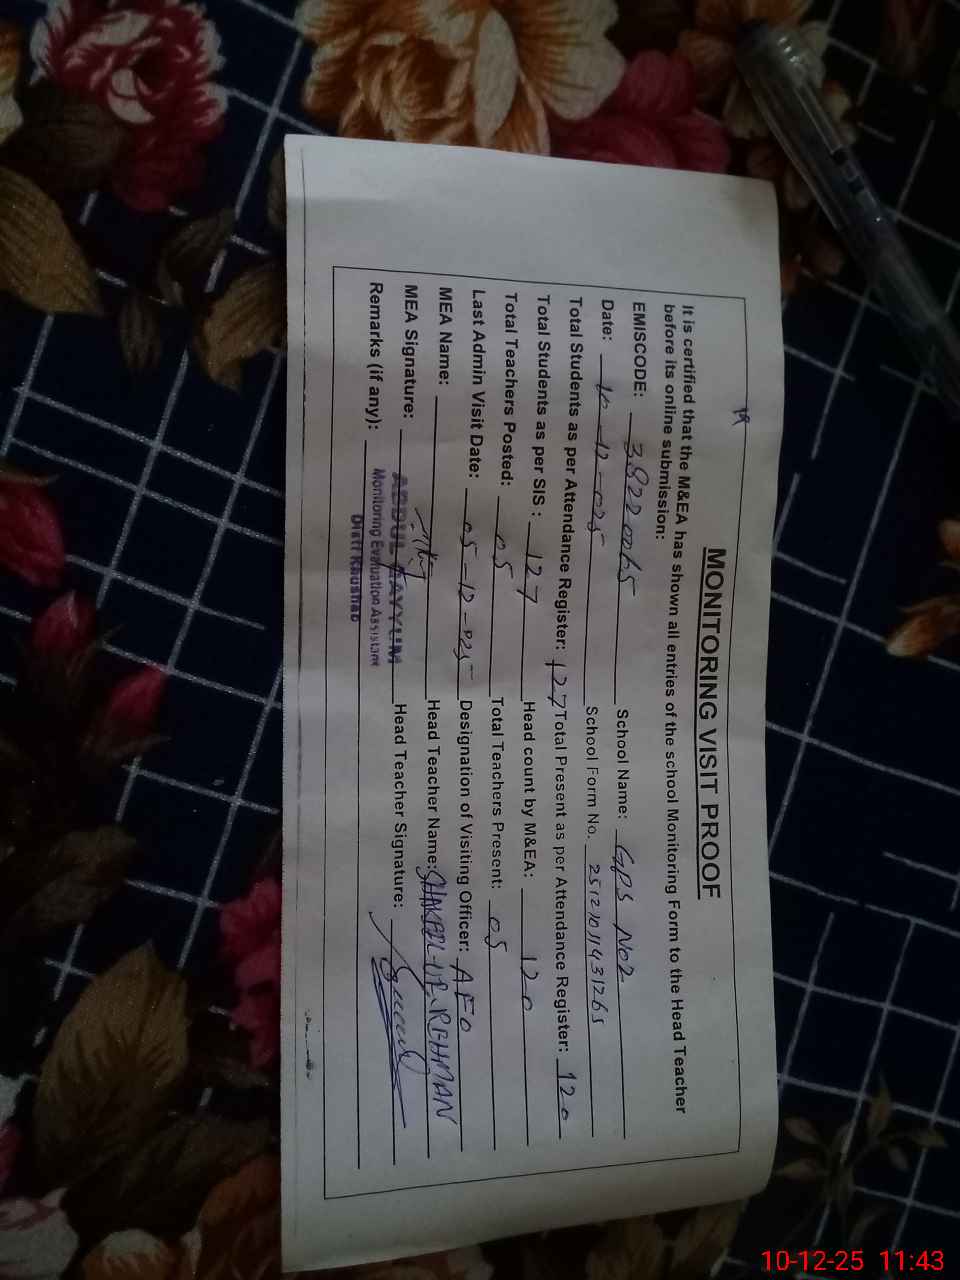 19
MONITORING VISIT PROOF
It is certified that the M&EA has shown all entries of the school Monitoring Form to the Head Teacher
before its online submission:
EMISCODE: 38220065 School Name: GPS No2
Date: 10-12-025 School Form No. 25121011431265
Total Students as per Attendance Register: 127 Total Present as per Attendance Register: 120
Total Students as per SIS : 127 Head count by M&EA: 120
Total Teachers Posted: 05 Total Teachers Present: 05
Last Admin Visit Date: 05-12-025 Designation of Visiting Officer: AEO
MEA Name: Head Teacher Name: SHAKEEL-UR-REHMAN
MEA Signature: ABDUL QAYYUM Head Teacher Signature:
Remarks (if any): Monitoring Evaluation Assistant
Distt Khushab
10-12-25 11:43